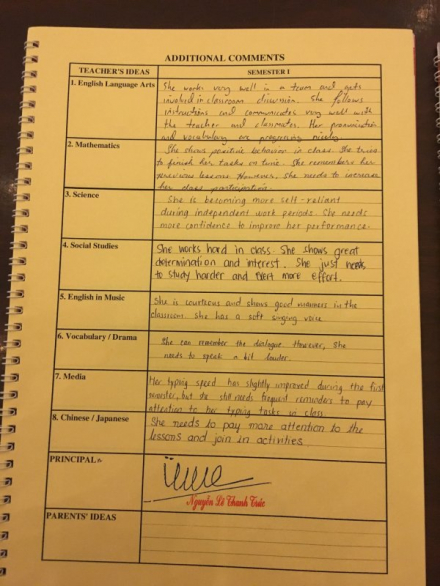 ADDITIONAL COMMENTS
TEACHER'S IDEAS
SEMESTER I
1. English Language Arts
She works very well in a team and gets
involved in classroom discussion. She follows
instructions and communicates very well with
the teacher and classmates. Her pronunciation
and vocabulary are progressing nicely.
2. Mathematics
She shows positive behavior in class. She tries
to finish her tasks on time. She remembers her
previous lessons. However, she needs to increase
her class participation.
3. Science
She is becoming more self-reliant
during independent work periods. needs
more confidence to improve her performance.
4. Social Studies
She works hard in class. She shows great
determination and interest. She just needs
to study harder and exert more effort.
5. English in Music
She is courteous and shows good manners in the
classroom. She has a soft singing voice
6. Vocabulary / Drama
She can remember the dialogue. However, she
needs to speak a bit louder.
7. Media
Her typing speed has slightly improved during the first
semester, but she still needs frequent reminders to pay
attention to her typing tasks in class.
8. Chinese / Japanese
She needs to pay more attention to the
lessons and join in activities.
PRINCIPAL
Nguyễn Lê Thanh Trúc
PARENTS' IDEAS